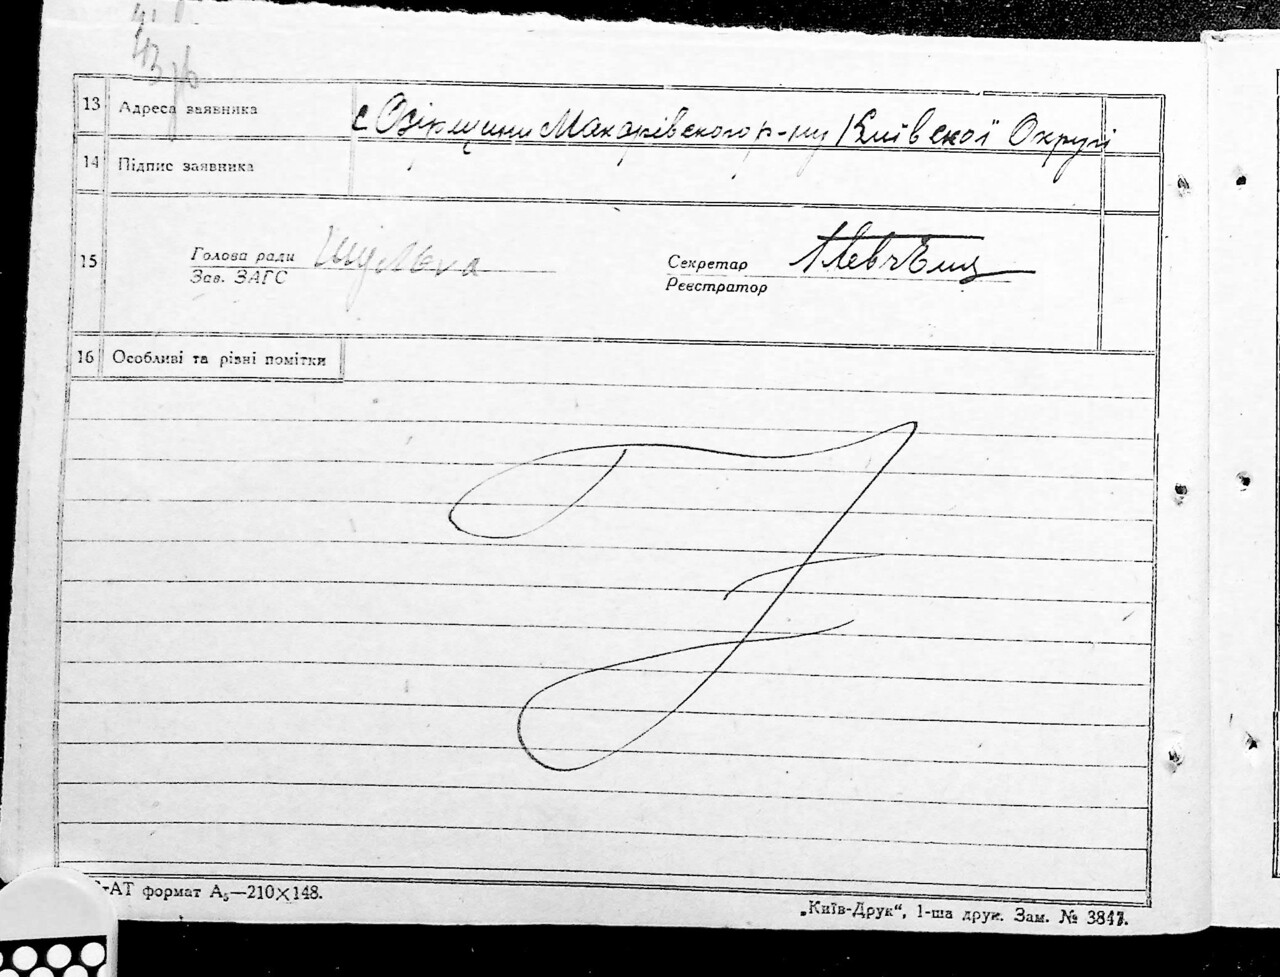 13 Адреса заявника с Озірщини Макарівского р-ну Київскої Округи
14 Підпис заявника
15 Голова ради Шульга
Зав. ЗАГС
Секретар
Реєстратор
16 Особливі та різні помітки
АТ формат А₅—210×148.
„Київ-Друк“, 1-ша друк. Зам. № 3847.